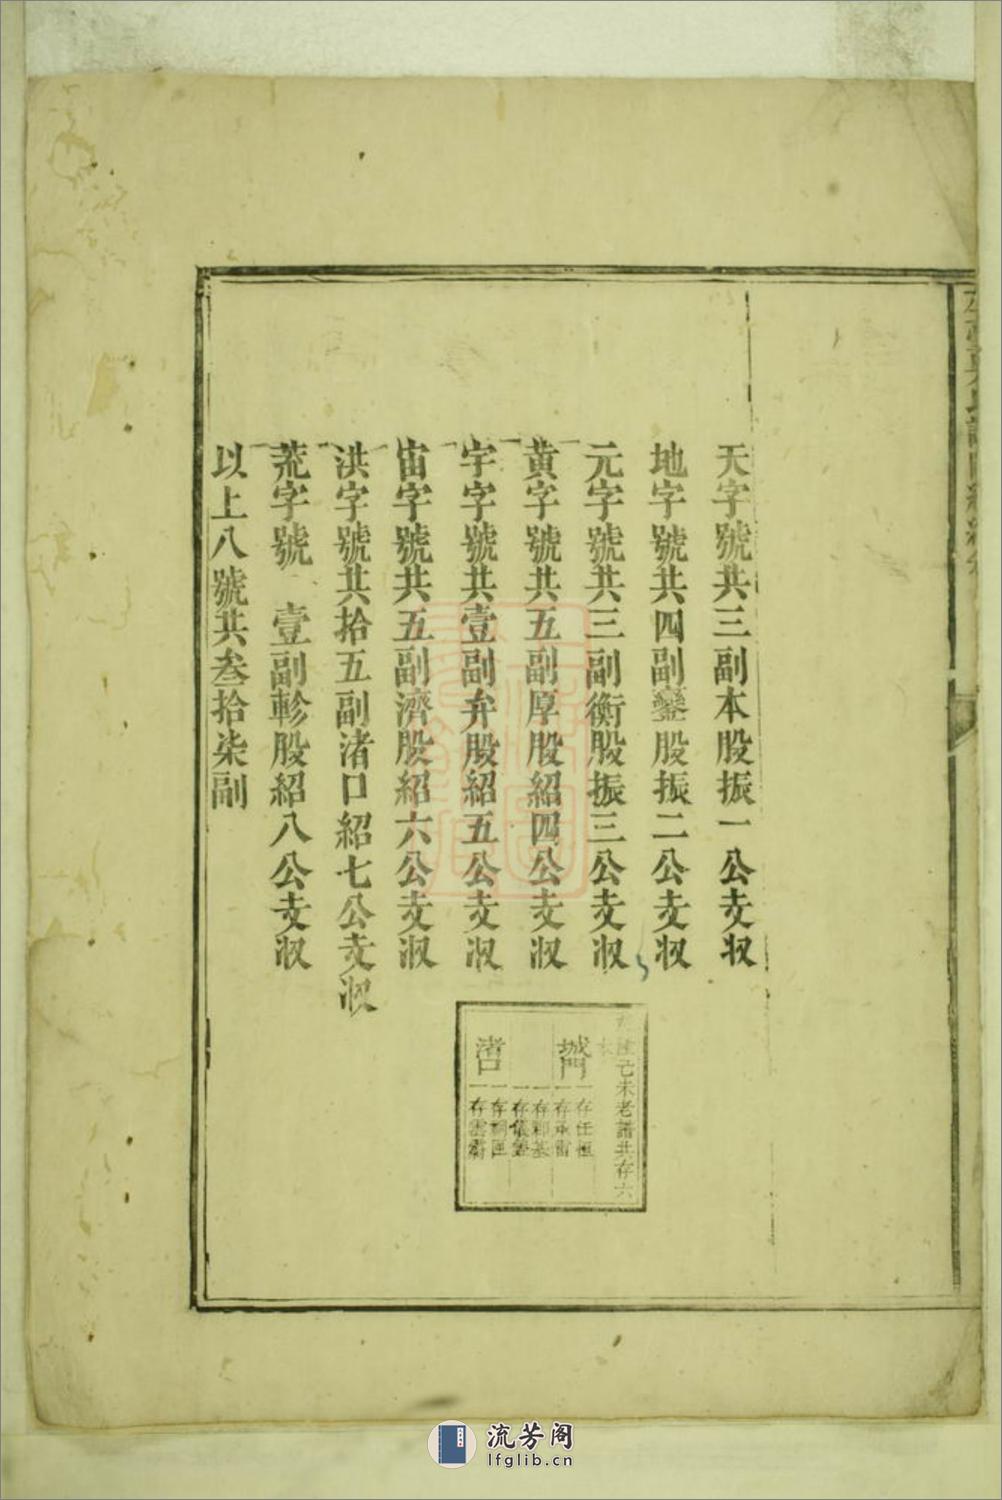 天字號共三副本股振一公支收
地字號共四副鑾股振二公支收
元字號共三副衡股振三公支收
黄字號共五副厚股紹四公支收
宇字號共壹副弁股紹五公支收
宙字號共五副濟股紹六公支收
洪字號共拾五副渚口紹七公支收
荒字號 壹副軫股紹八公支收
以上八號共叁拾柒副
己未老譜共存六
城門
一存任
一存
一存
一存儀
渚口
一存
一存雲
流芳阁
lfglib.cn